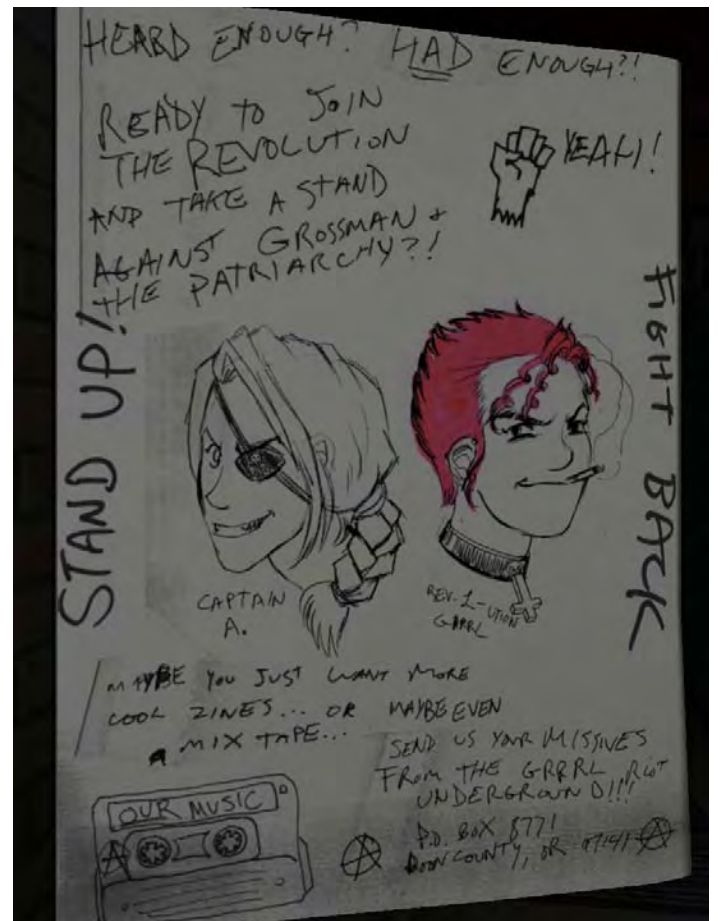 HEARD ENOUGH? HAD ENOUGH?!
READY TO JOIN
THE REVOLUTION
AND TAKE A STAND
AGAINST GROSSMAN &
THE PATRIARCHY?!
YEAH!
STAND UP!
FIGHT BACK
CAPTAIN
A.
REV. L-UTION
GRRL
MAYBE YOU JUST WANT MORE
COOL ZINES... OR MAYBE EVEN
A MIX TAPE...
SEND US YOUR MISSIVES
FROM THE GRRRL RIOT
UNDERGROUND!!!
OUR MUSIC
A
P.O. BOX 8771
BOON COUNTY, OR